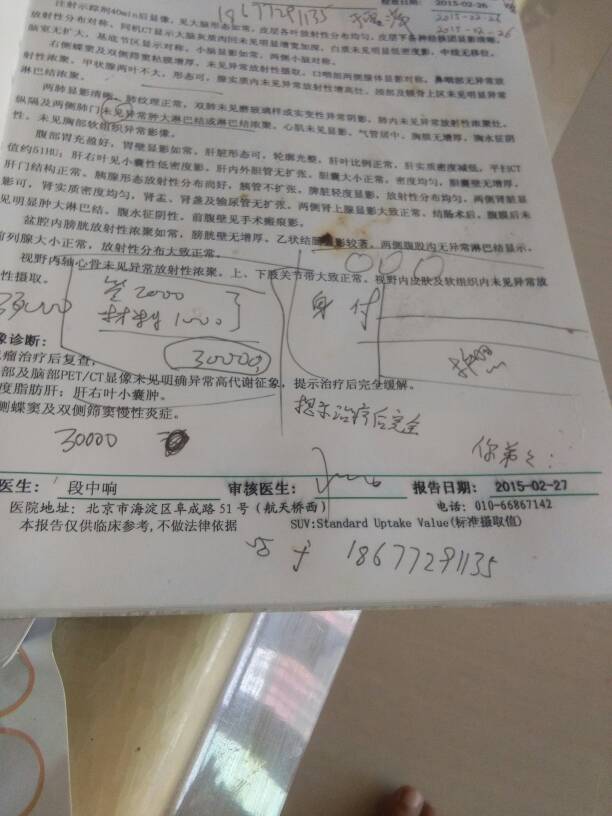 检查日期: 2015-02-26
18677291135
2015-02-26
2015-02-26
注射示踪剂40min后显像，见大脑形态如常，皮层各叶放射性分布均匀，皮层下各神经核团显影清晰，
放射性分布对称，同机CT显示大脑灰质内未见明显密度，白质未见明显低密度影，中线无移位，
脑室无扩大，基底节区显示对称，小脑显影如常，两侧小脑对称。
右侧蝶窦及双侧筛窦粘膜增厚，未见异常放射性摄取。口咽部两侧腺体显影对称，鼻咽部无异常放
射性浓聚。甲状腺两叶不大，形态可，腺实质内未见异常放射性增高灶。颈部及锁骨上区未见明显异常
淋巴结浓聚。
两肺显影清晰，肺纹理正常，双肺未见磨玻璃样或实变性异常阴影，肺内未见异常放射性浓聚灶。
纵隔及两侧肺门未见异常肿大淋巴结或淋巴结浓聚。心肌未见显影，气管居中，胸膜无增厚，胸水征阴
性。未见胸部软组织异常影像。
腹部胃充盈好，胃壁显影如常，肝脏形态可，轮廓光整，肝叶比例正常，肝实质密度减低，平扫CT
值约51HU；肝右叶见小囊性低密度影，肝内外胆管无扩张，胆囊大小正常，密度均匀，胆囊壁无增厚，
肝门结构正常。胰腺形态放射性分布尚好，胰管不扩张。脾脏轻度显影，放射性分布均匀，两侧肾脏显
影可，肾实质密度均匀，肾盂、肾盏及输尿管无扩张。两侧肾上腺显影大致正常。结肠术后，腹膜后未
见明显肿大淋巴结。腹水征阴性。前腹壁见手术瘢痕影。
盆腔内膀胱放射性浓聚如常，膀胱壁无增厚，乙状结肠显影较著。两侧腹股沟无异常淋巴结显示。
前列腺大小正常，放射性分布大致正常。
视野内轴心骨未见异常放射性浓聚。上、下肢关节带大致正常。视野内皮肤及软组织内未见异常放
性摄取。
2000
材料 1000
30000
身 付
像诊断：
瘤治疗后复查，
部及脑部PET/CT显像未见明确异常高代谢征象，提示治疗后完全缓解。
度脂肪肝；肝右叶小囊肿。
侧蝶窦及双侧筛窦慢性炎症。
提示治疗后完全
30000
你弟弟：
医生： 段中响 审核医生： 报告日期： 2015-02-27
医院地址：北京市海淀区阜成路51号（航天桥西） 电话：010-66867142
本报告仅供临床参考，不做法律依据 SUV:Standard Uptake Value(标准摄取值)
18677291135